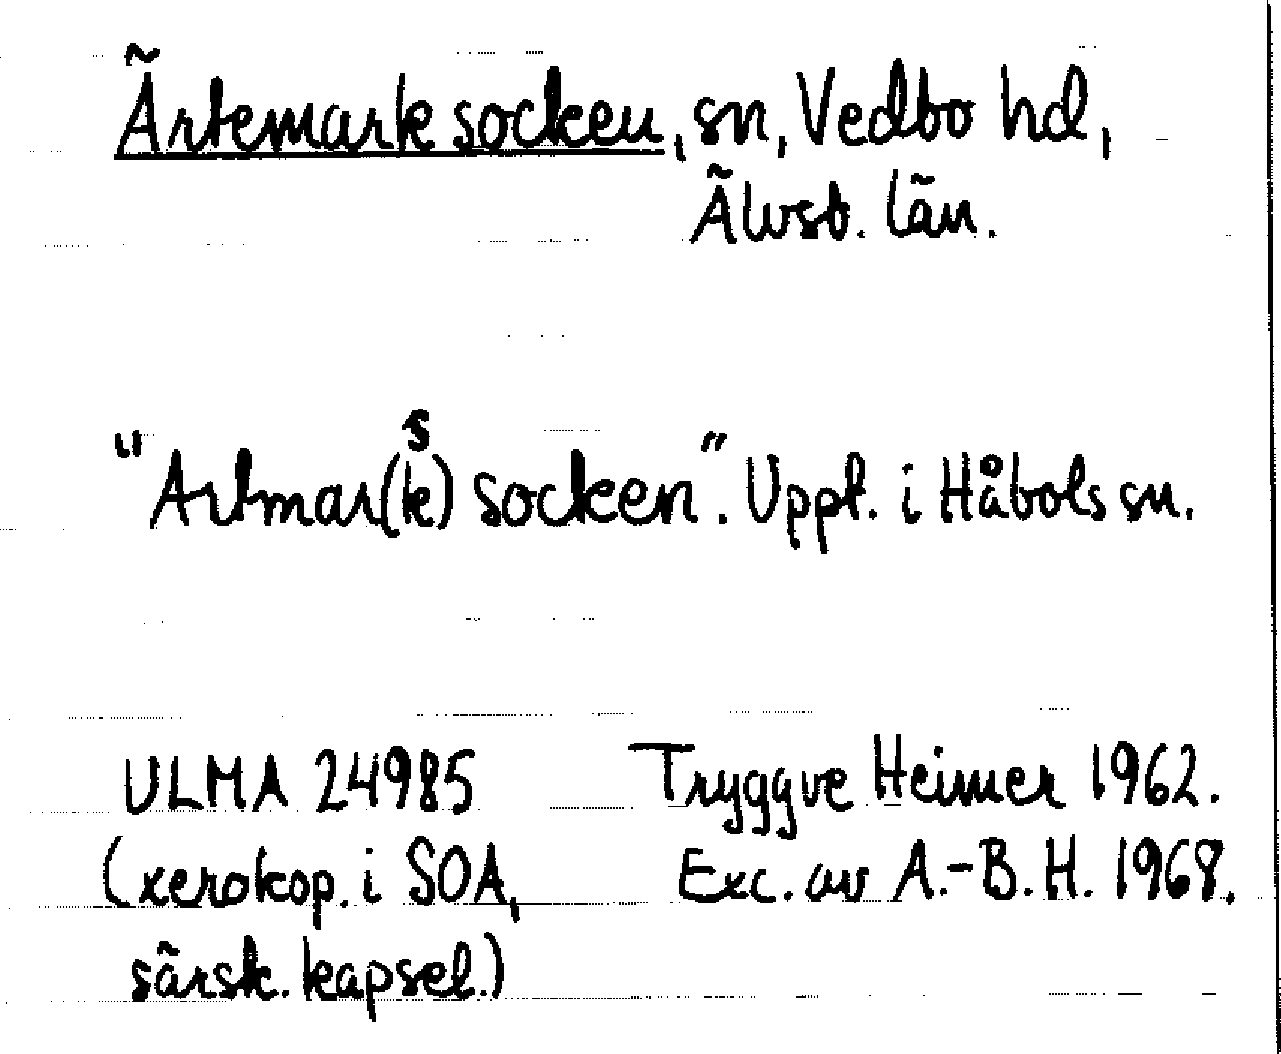 Ärtemark socken, sn, Vedbo hd,
Älvsb. län.
"Artmar(k)s socken". Uppt. i Håbols sn.
ULMA 24985 Tryggve Heimer 1962.
(xerokop. i SOA, Exc. av A.-B.H. 1968.
särsk. kapsel.)